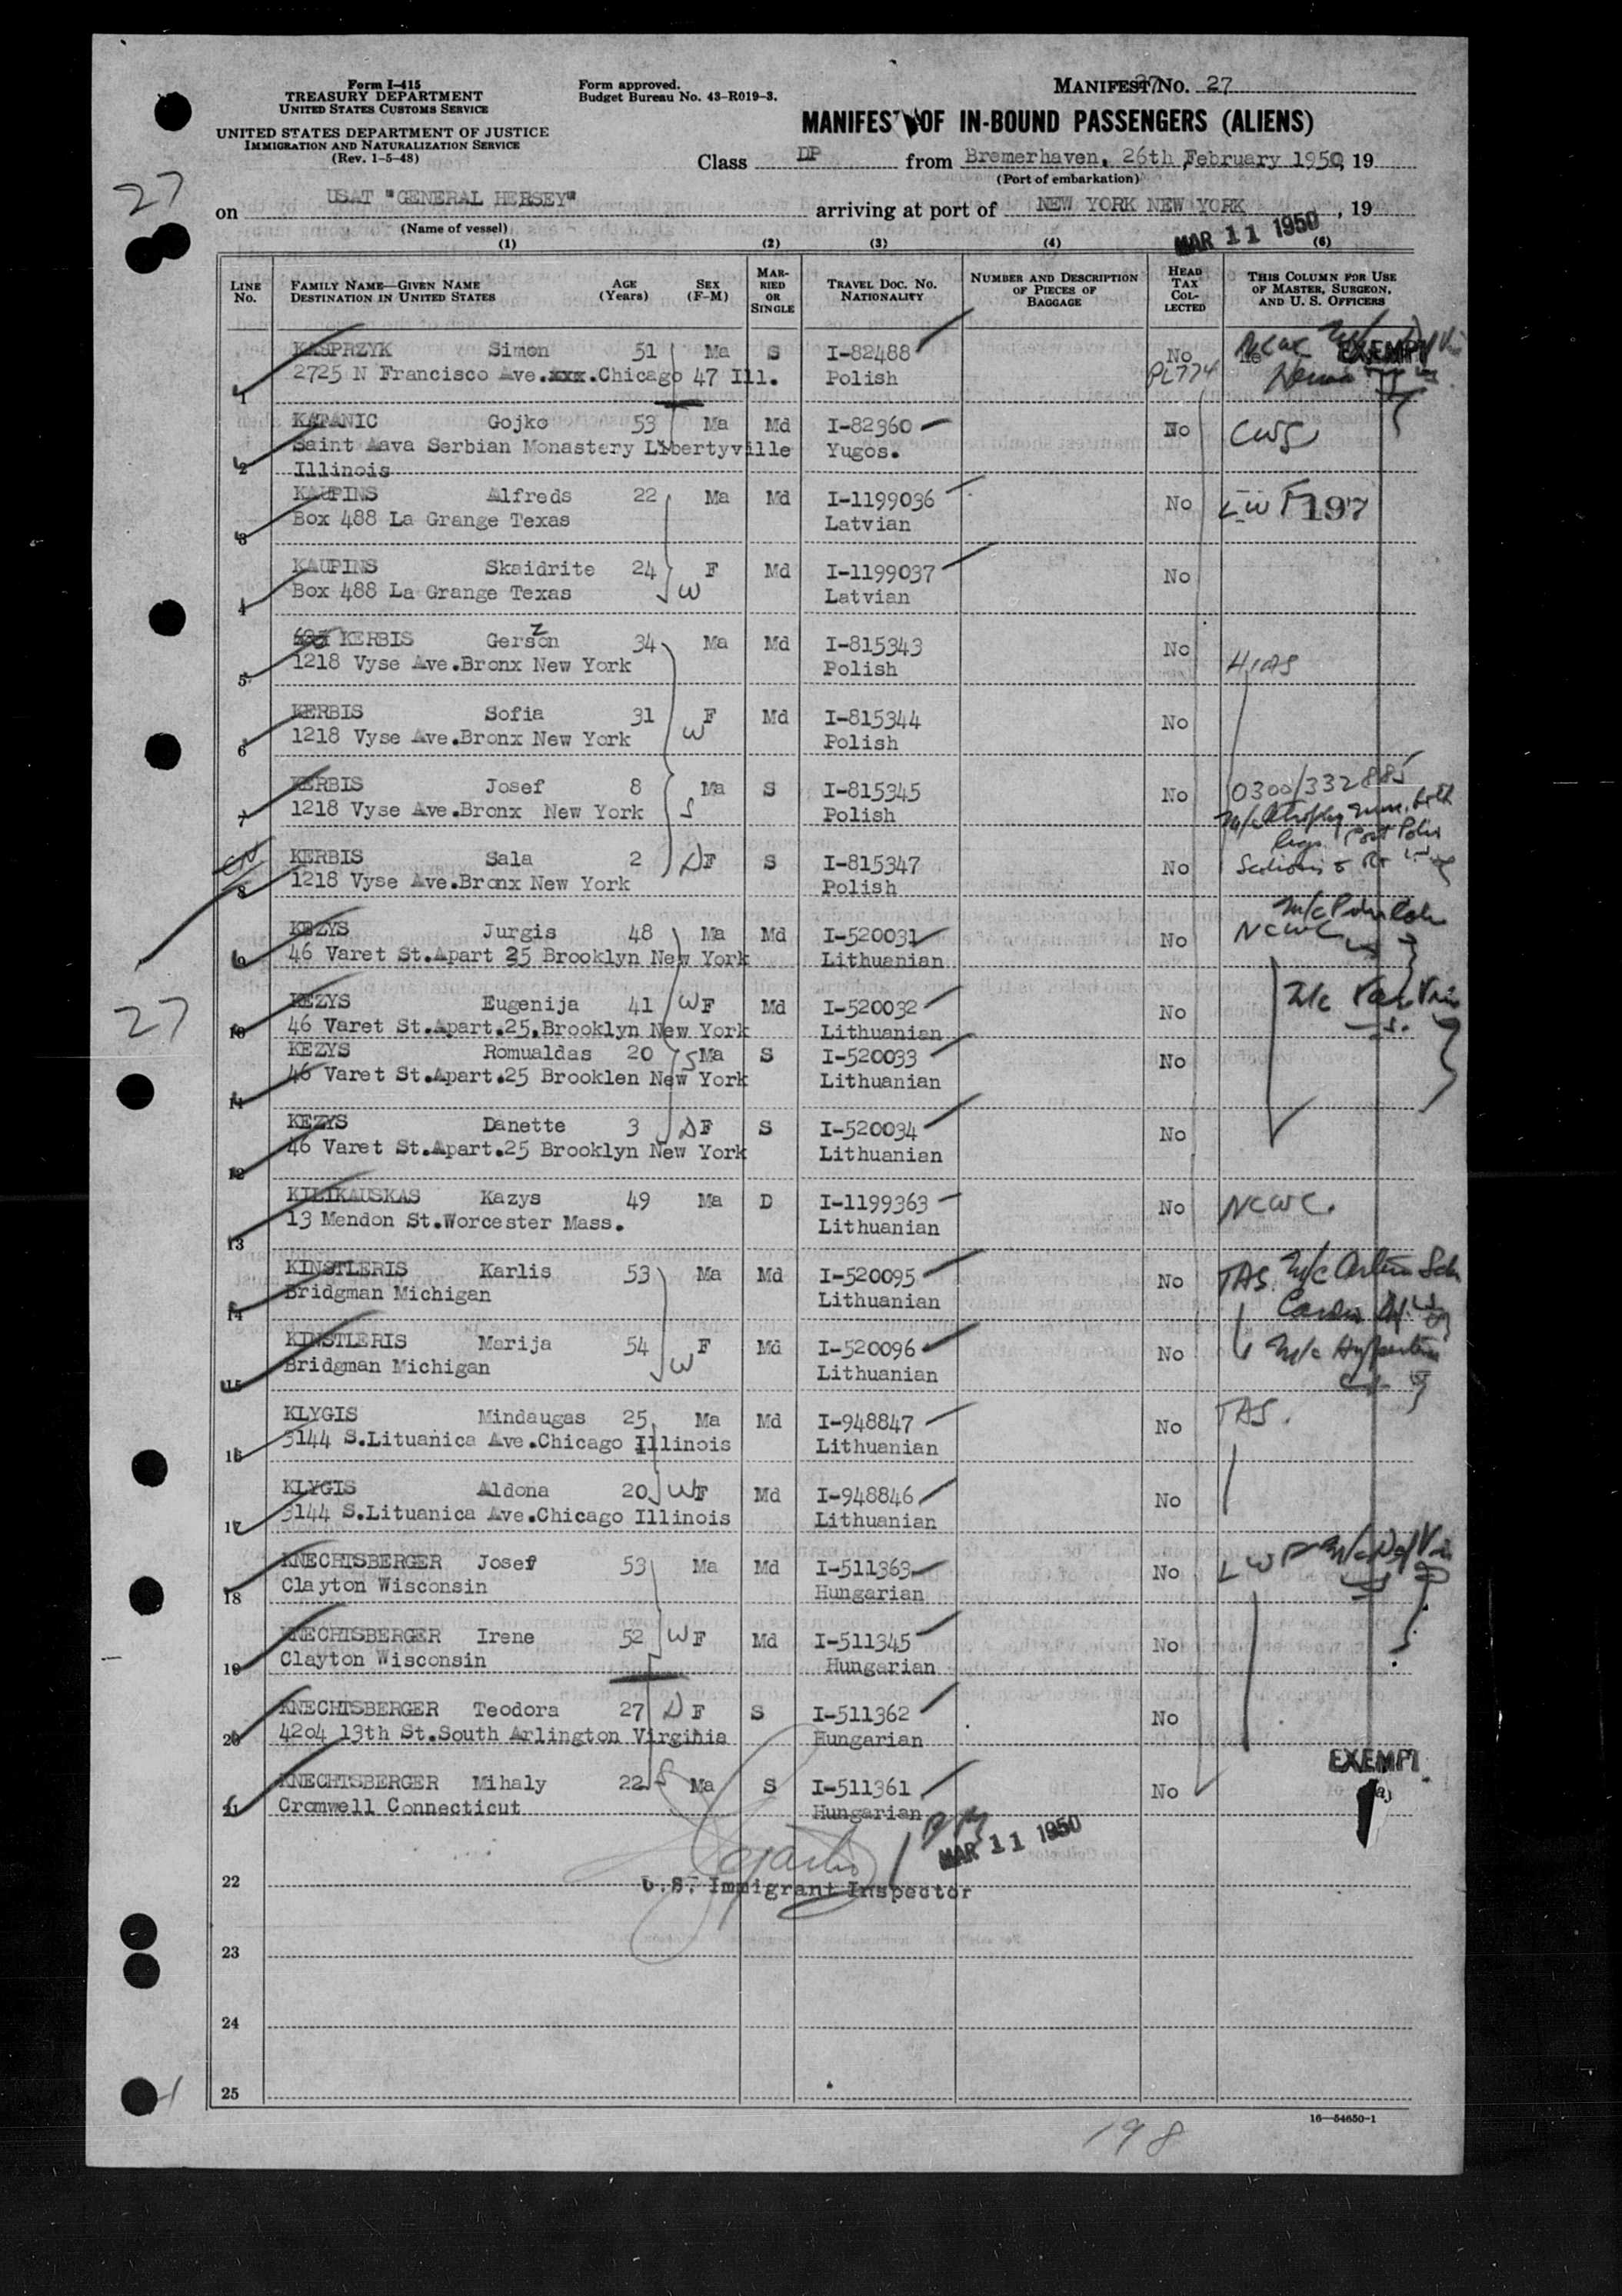 Form I-415
TREASURY DEPARTMENT
UNITED STATES CUSTOMS SERVICE
UNITED STATES DEPARTMENT OF JUSTICE
IMMIGRATION AND NATURALIZATION SERVICE
(Rev. 1-5-48)
Form approved.
Budget Bureau No. 43-R019-3.
MANIFEST NO. 27
MANIFEST OF IN-BOUND PASSENGERS (ALIENS)
Class DP from Bremerhaven, 26th, February 1950, 19
(Port of embarkation)
27
on USAT "GENERAL HERSEY" arriving at port of NEW YORK NEW YORK, 19
(Name of vessel)
MAR 11 1950
(1) (2) (3) (4) (6)
LINE No. FAMILY NAME—GIVEN NAME DESTINATION IN UNITED STATES AGE (Years) SEX (F-M) MARRIED OR SINGLE TRAVEL DOC. NO. NATIONALITY NUMBER AND DESCRIPTION OF PIECES OF BAGGAGE HEAD TAX COLLECTED THIS COLUMN FOR USE OF MASTER, SURGEON, AND U. S. OFFICERS
1 KASPRZYK Simon 51 Ma S I-82488 No EXEMPT
2725 N Francisco Ave.xxx.Chicago 47 Ill. Polish PL774
2 KAPANIC Gojko 53 Ma Md I-82360 No CWS
Saint Aava Serbian Monastery Libertyville Yugos.
Illinois
3 KAUPINS Alfreds 22 Ma Md I-1199036 No LWF 197
Box 488 La Grange Texas Latvian
4 KAUPINS Skaidrite 24 W F Md I-1199037 No
Box 488 La Grange Texas Latvian
5 KERBIS Gerszon 34 Ma Md I-815343 No
1218 Vyse Ave.Bronx New York Polish HIAS
6 KERBIS Sofia 31 W F Md I-815344 No
1218 Vyse Ave.Bronx New York Polish
7 KERBIS Josef 8 S Ma S I-815345 No 0300/332885
1218 Vyse Ave.Bronx New York Polish
8 KERBIS Sala 2 D F S I-815347 No
1218 Vyse Ave.Bronx New York Polish
9 KEZYS Jurgis 48 Ma Md I-520031 No NCWC
46 Varet St.Apart 25 Brooklyn New York Lithuanian
27
10 KEZYS Eugenija 41 W F Md I-520032 No
46 Varet St.Apart.25,Brooklyn New York Lithuanian
11 KEZYS Romualdas 20 S Ma S I-520033 No
46 Varet St.Apart.25 Brooklen New York Lithuanian
12 KEZYS Danette 3 D F S I-520034 No
46 Varet St.Apart.25 Brooklyn New York Lithuanian
13 KILIKAUSKAS Kazys 49 Ma D I-1199363 No NCWC.
13 Mendon St.Worcester Mass. Lithuanian
14 KINSTLERIS Karlis 53 Ma Md I-520095 No TAS
Bridgman Michigan Lithuanian
15 KINSTLERIS Marija 54 W F Md I-520096 No
Bridgman Michigan Lithuanian
16 KLYGIS Mindaugas 25 Ma Md I-948847 No TAS.
3144 S.Lituanica Ave.Chicago Illinois Lithuanian
17 KLYGIS Aldona 20 W F Md I-948846 No
3144 S.Lituanica Ave.Chicago Illinois Lithuanian
18 KNECHTSBERGER Josef 53 Ma Md I-511363 No LWF
Clayton Wisconsin Hungarian
19 KNECHTSBERGER Irene 52 W F Md I-511345 No
Clayton Wisconsin Hungarian
20 KNECHTSBERGER Teodora 27 D F S I-511362 No
4204 13th St.South Arlington Virginia Hungarian
EXEMPT
21 KNECHTSBERGER Mihaly 22 S Ma S I-511361 No
Cromwell Connecticut Hungarian
MAR 11 1950
22 U.S. Immigrant Inspector
23
24
25
16—54650-1
198